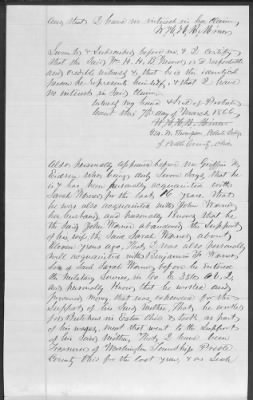 and that I have no interest in his claim,
W. H. H. B. Minor
Sworn to & Subscribed before me, & I certify
that the said Wm H. H. B. Minor, is a respectable
and credible witness & that he is the identical
person he represents himself, & that I have
no interest in said claim
Witness my hand & seal of Probate
Court this 7th day of March 1866,
Geo. W. Thompson, Probate Judge
of Preble County, Ohio
Also personally appeared before me Griffin
who being duly sworn says that he
is & has been personally acquainted with
Sarah Warner for the last 16 years. That
he was also acquainted with John Warner
her husband and personally knows that he
the said John Warner abandoned the support
of his wife the said Sarah Warner about
years ago, That I was also personally
well acquainted with Benjamin F. Warner
son of said Sarah Warner before he entered
the Military Service, in Co.
and personally know that he worked and
procured money that was expended for the
support of his said Mother, That he worked
for in Eaton Ohio & took as part
of his wages, meat that went to the support
of his said Mother, That I have been
Trustee of Washington Township Preble
County Ohio for the last year, & as such